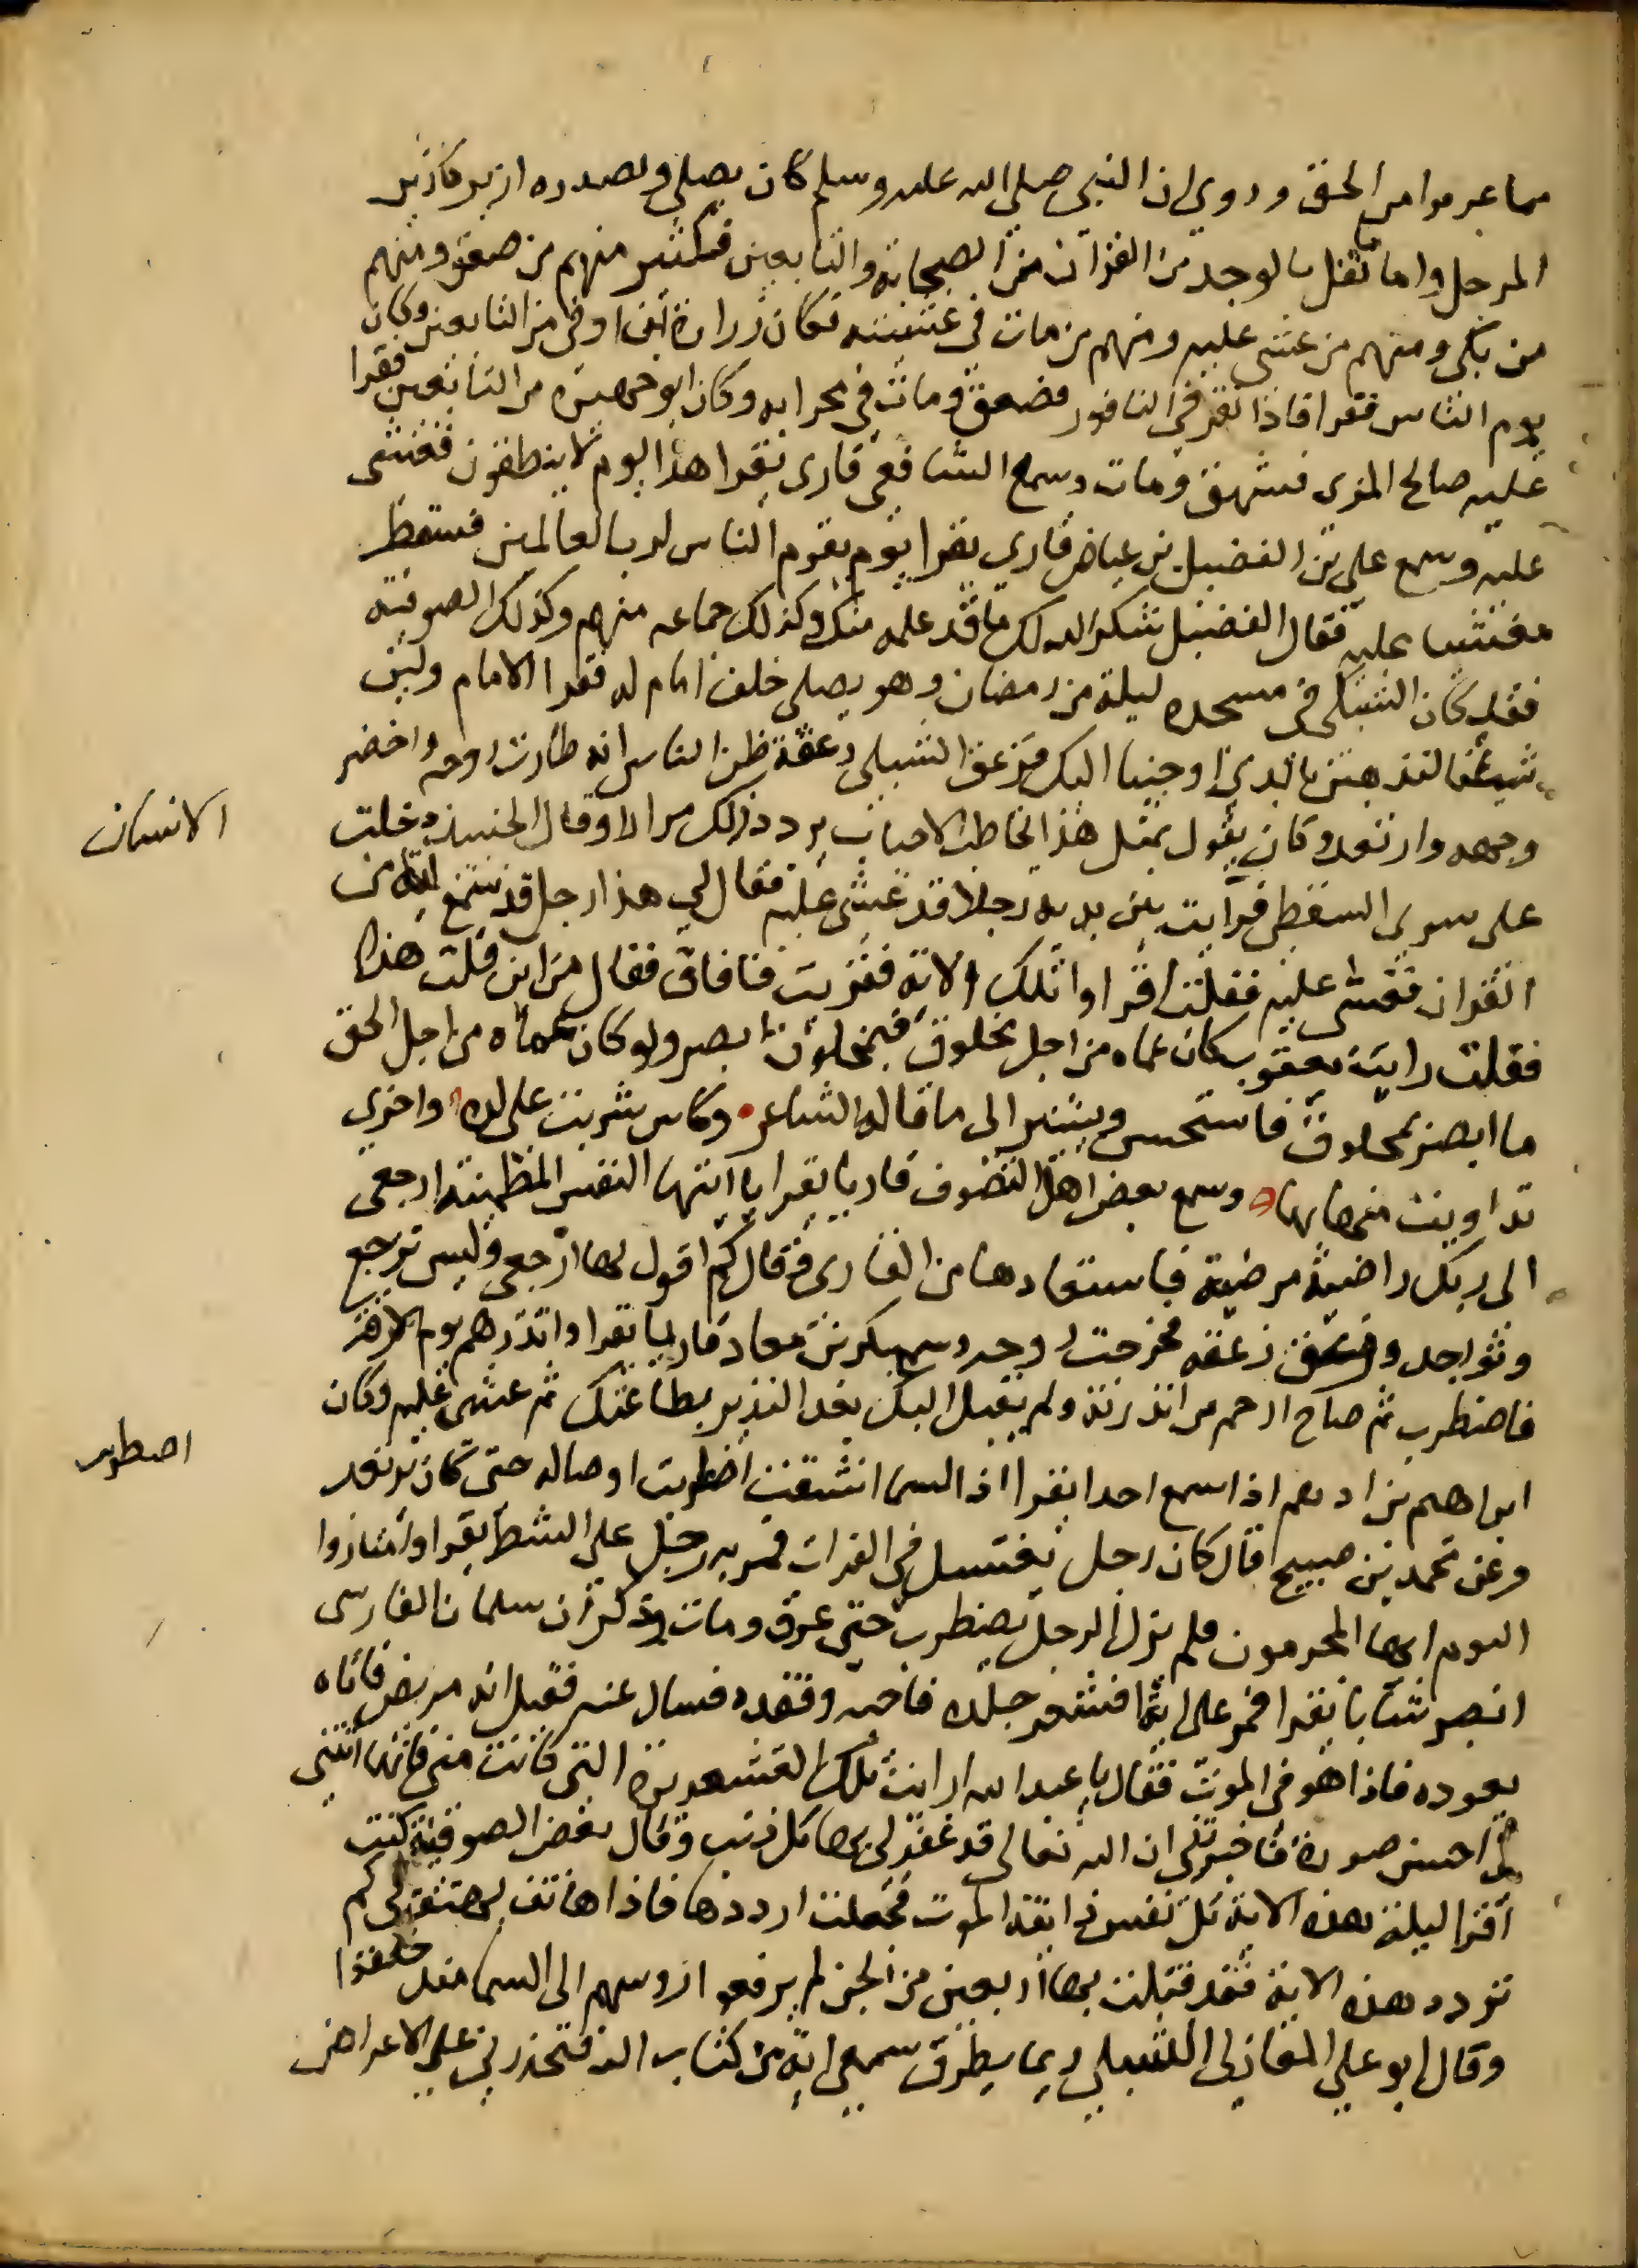 مما عرفوا من الحق وروي ان النبي صلي الله عليه وسلم كان يصلي ولصدره ازير كازير
المرجل واما نقل بالوجد من القران من الصحابة والتابعين فكثير منهم من صعق ومنهم
من بكي ومنهم من غشي عليه ومنهم من مات في غشيته فكان زرارة ابن اوفي من التابعين وكان
يوم الناس فقرا فاذا نقر في الناقور فصعق ومات في محرابه وكان ابو جهير من التابعين فقرا
عليه صالح المري فشهق ومات وسمع الشافعي قاري يقرا هذا يوم لا ينطقون فغشي
عليه وسمع علي بن الفضيل بن عياض قاري يقرا يوم يقوم الناس لرب العالمين فسقط
مغشيا عليه فقال الفضيل شكر الله لك ما قد علمه منك وكذلك جماعه منهم وكذلك الصوفية
فقد كان الشبلي في مسجده ليلة من رمضان وهو يصلي خلف امام له فقرا الامام ولين
شينا لنذهبن بالذي اوحينا اليك فزعق الشبلي زعقة ظن الناس انه طارت روحه واخضر
وجهه وارتعد وكان يقول بمثل هذا يخاطب الاحباب يردد ذلك مرارا وقال الجنيد دخلت
الانسان
علي سري السقطي فرايت بين يديه رجلا قد غشي عليه فقال لي هذا رجل قد سمع اية من
القران فغشي عليه فقلت اقراوا تلك الاية فقريت فافاق فقال من اين قلت هذا
فقلت رايت يعقوب كان عماه من اجل مخلوق فبمخلوق ابصر ولو كان عماه من اجل الحق
ما ابصر بمخلوق فاستحسن ويشير الي ما قاله الشاعر وكاس شربت علي لذه واخري
تداويت منها بها وسمع بعض اهل التصوف قاريا يقرا يا ايتها النفس المطمينة ارجعي
الي ربك راضية مرضية فاستعادها من القاري وقال كم اقول لها ارجعي وليس ترجع
وتواجد وزعق زعقه فخرجت روحه وسمع بكر بن معاد قاريا يقرا وانذرهم يوم الازفة
فاضطرب ثم صاح ارحم من انذرته ولم يقبل اليك بعد النذير بطاعتك ثم غشي عليه وكان
ابراهيم بن ادهم اذا سمع احدا يقرا اذا السما انشقت اضطربت اوصاله حتي كان يرتعد
اضطربت
وعن محمد بن صبيح قال كان رجل يغتسل في الفرات فمر به رجل علي الشط يقرا وامتازوا
اليوم ايها المجرمون فلم يزل الرجل يضطرب حتي غرق ومات وذكر ان سلمان الفارسي
ابصر شابا يقرا فمر علي اية فاقشعر جلده فاحبه وفقده فسال عنه فقيل انه مريض فاتاه
يعوده فاذا هو في الموت فقال يا عبد الله ارايت تلك القشعريرة التي كانت مني فانها اتتني
في احسن صورة فاخبرتني ان الله تعالي قد غفر لي بها كل ذنب وقال بعض الصوفية كنت
اقرا ليلة هذه الاية كل نفس ذايقة الموت فجعلت ارددها فاذا هاتف يهتف لي كم
تردد هذه الاية فقد قتلت بها اربعين من الجن لم يرفعوا روسهم الي السما منذ خلقوا
وقال ابو علي المغازلي للشبلي ربما يطرق سمعي اية من كتاب الله فتحذرني علي الاعراض